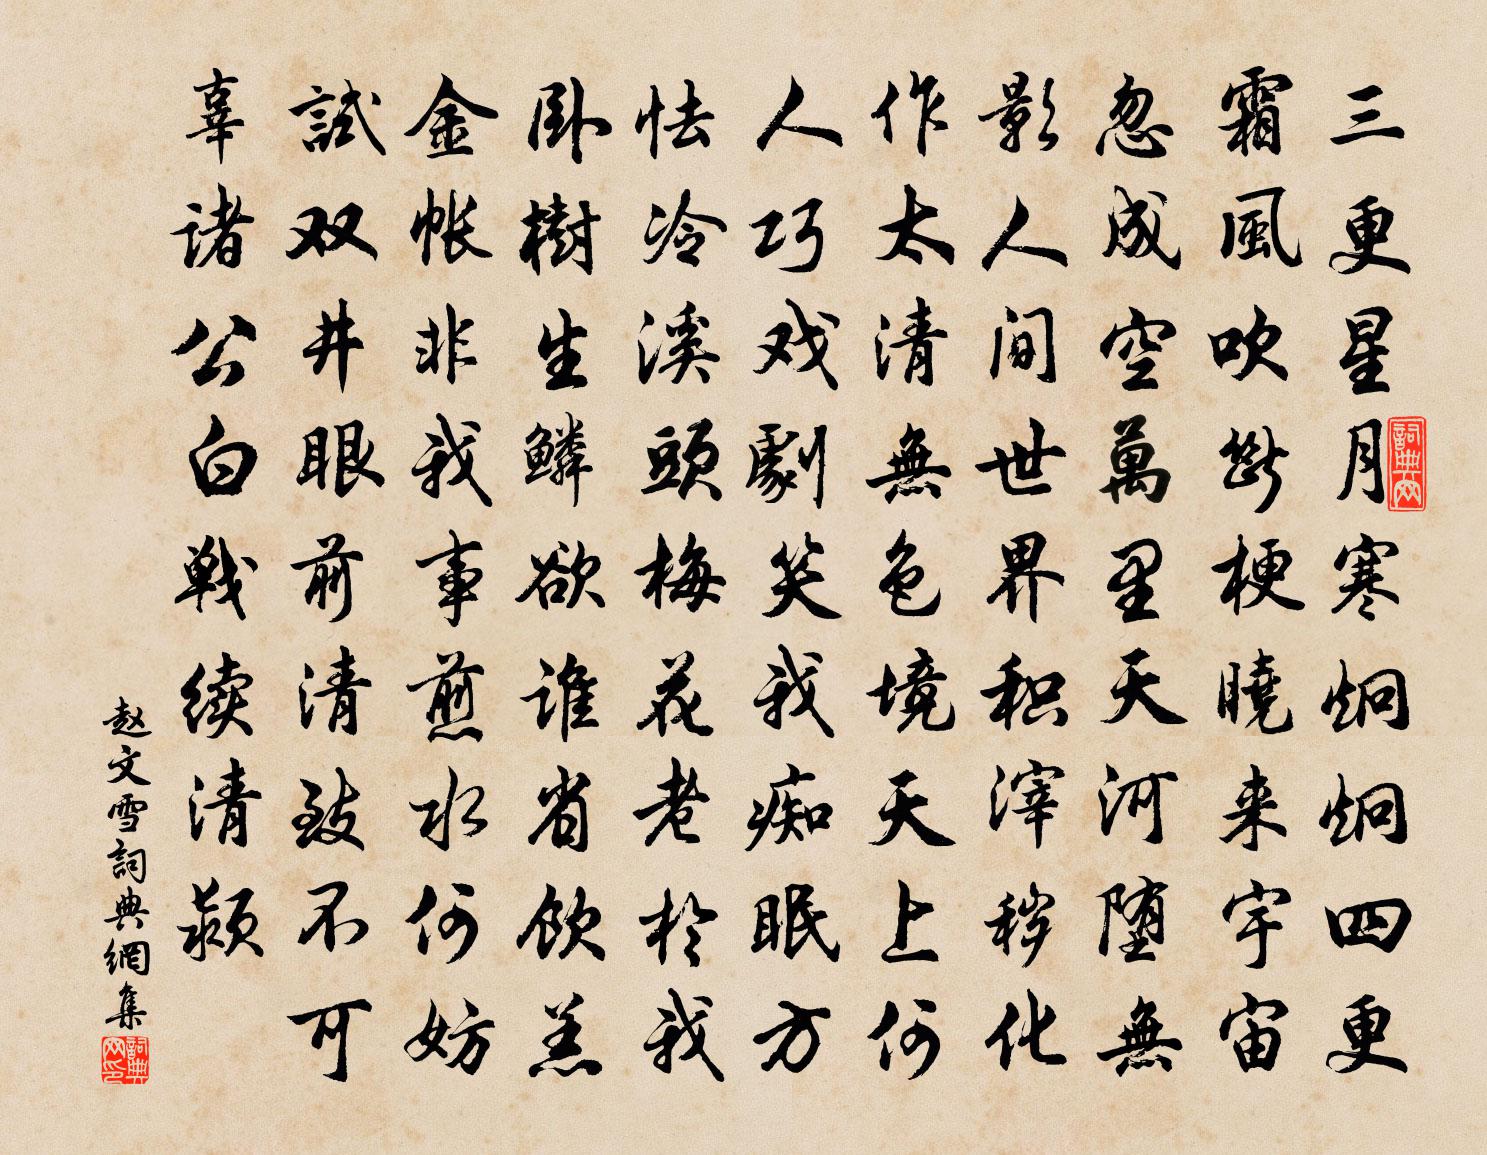 三更星月寒炯炯四更
霜風吹断梗曉来宇宙
忽成空萬里天河堕無
影人间世界积滓秽化
作太清無色境天上何
人巧戏劇笑我痴眠方
怯冷溪頭梅花老於我
卧樹生鳞欲谁省飲羔
金帐非我事煎水何妨
試双井眼前清致不可
辜诸公白戦续清颍
赵文雪詞典網集
詞典网
詞典网印